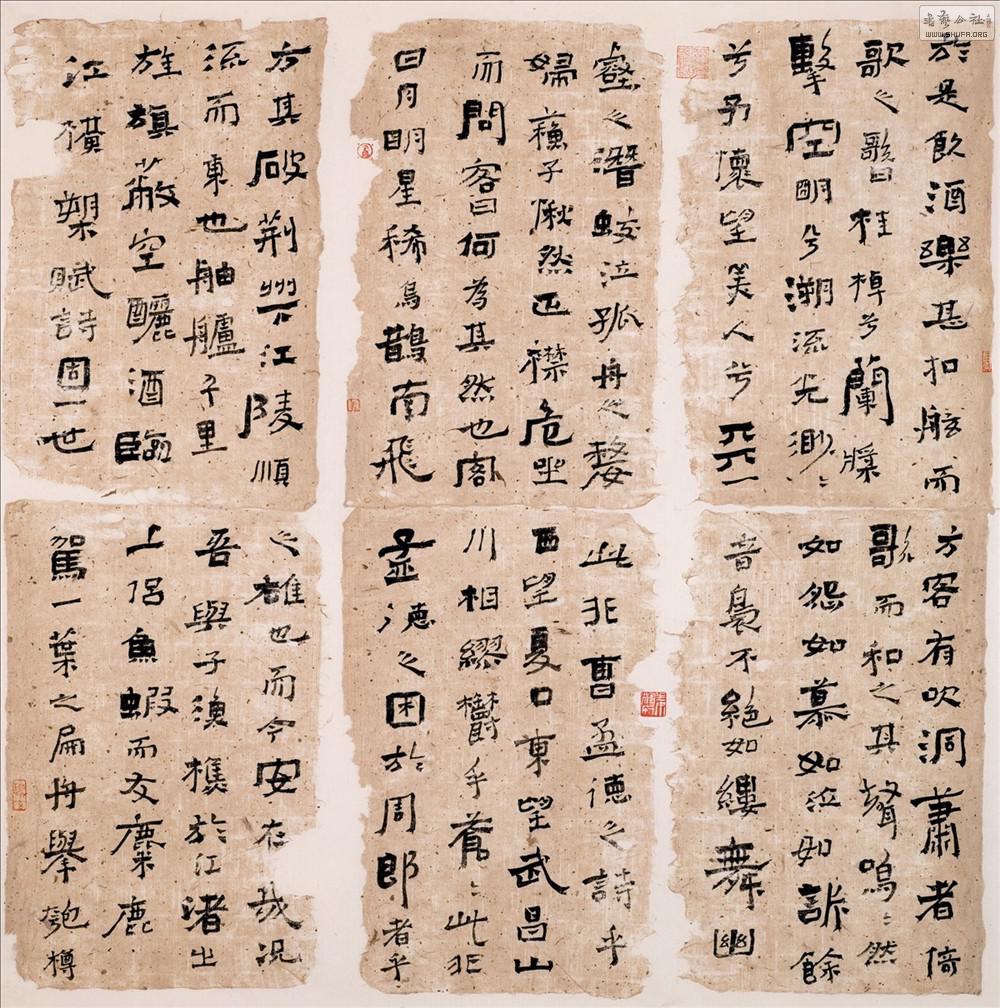 於是飲酒樂甚扣舷而
歌之歌曰桂棹兮蘭槳
擊空明兮溯流光渺〻
兮予懷望美人兮天一
方客有吹洞蕭者倚
歌而和之其聲嗚〻然
如怨如慕如泣如訴餘
音裊不絕如縷舞幽
壑之潛蛟泣孤舟之嫠
婦蘇子愀然正襟危坐
而問客曰何為其然也客
曰月明星稀烏鵲南飛
此非曹孟德之詩乎
西望夏口東望武昌山
川相繆鬱乎蒼〻此非
孟德之困於周郎者乎
方其破荊州下江陵順
流而東也舳艫千里
旌旗蔽空釃酒臨
江橫槊賦詩固一世
之雄也而今安在哉況
吾與子漁樵於江渚之
上侶魚蝦而友麋鹿
駕一葉之扁舟舉匏樽
WWW.SHUFA.ORG